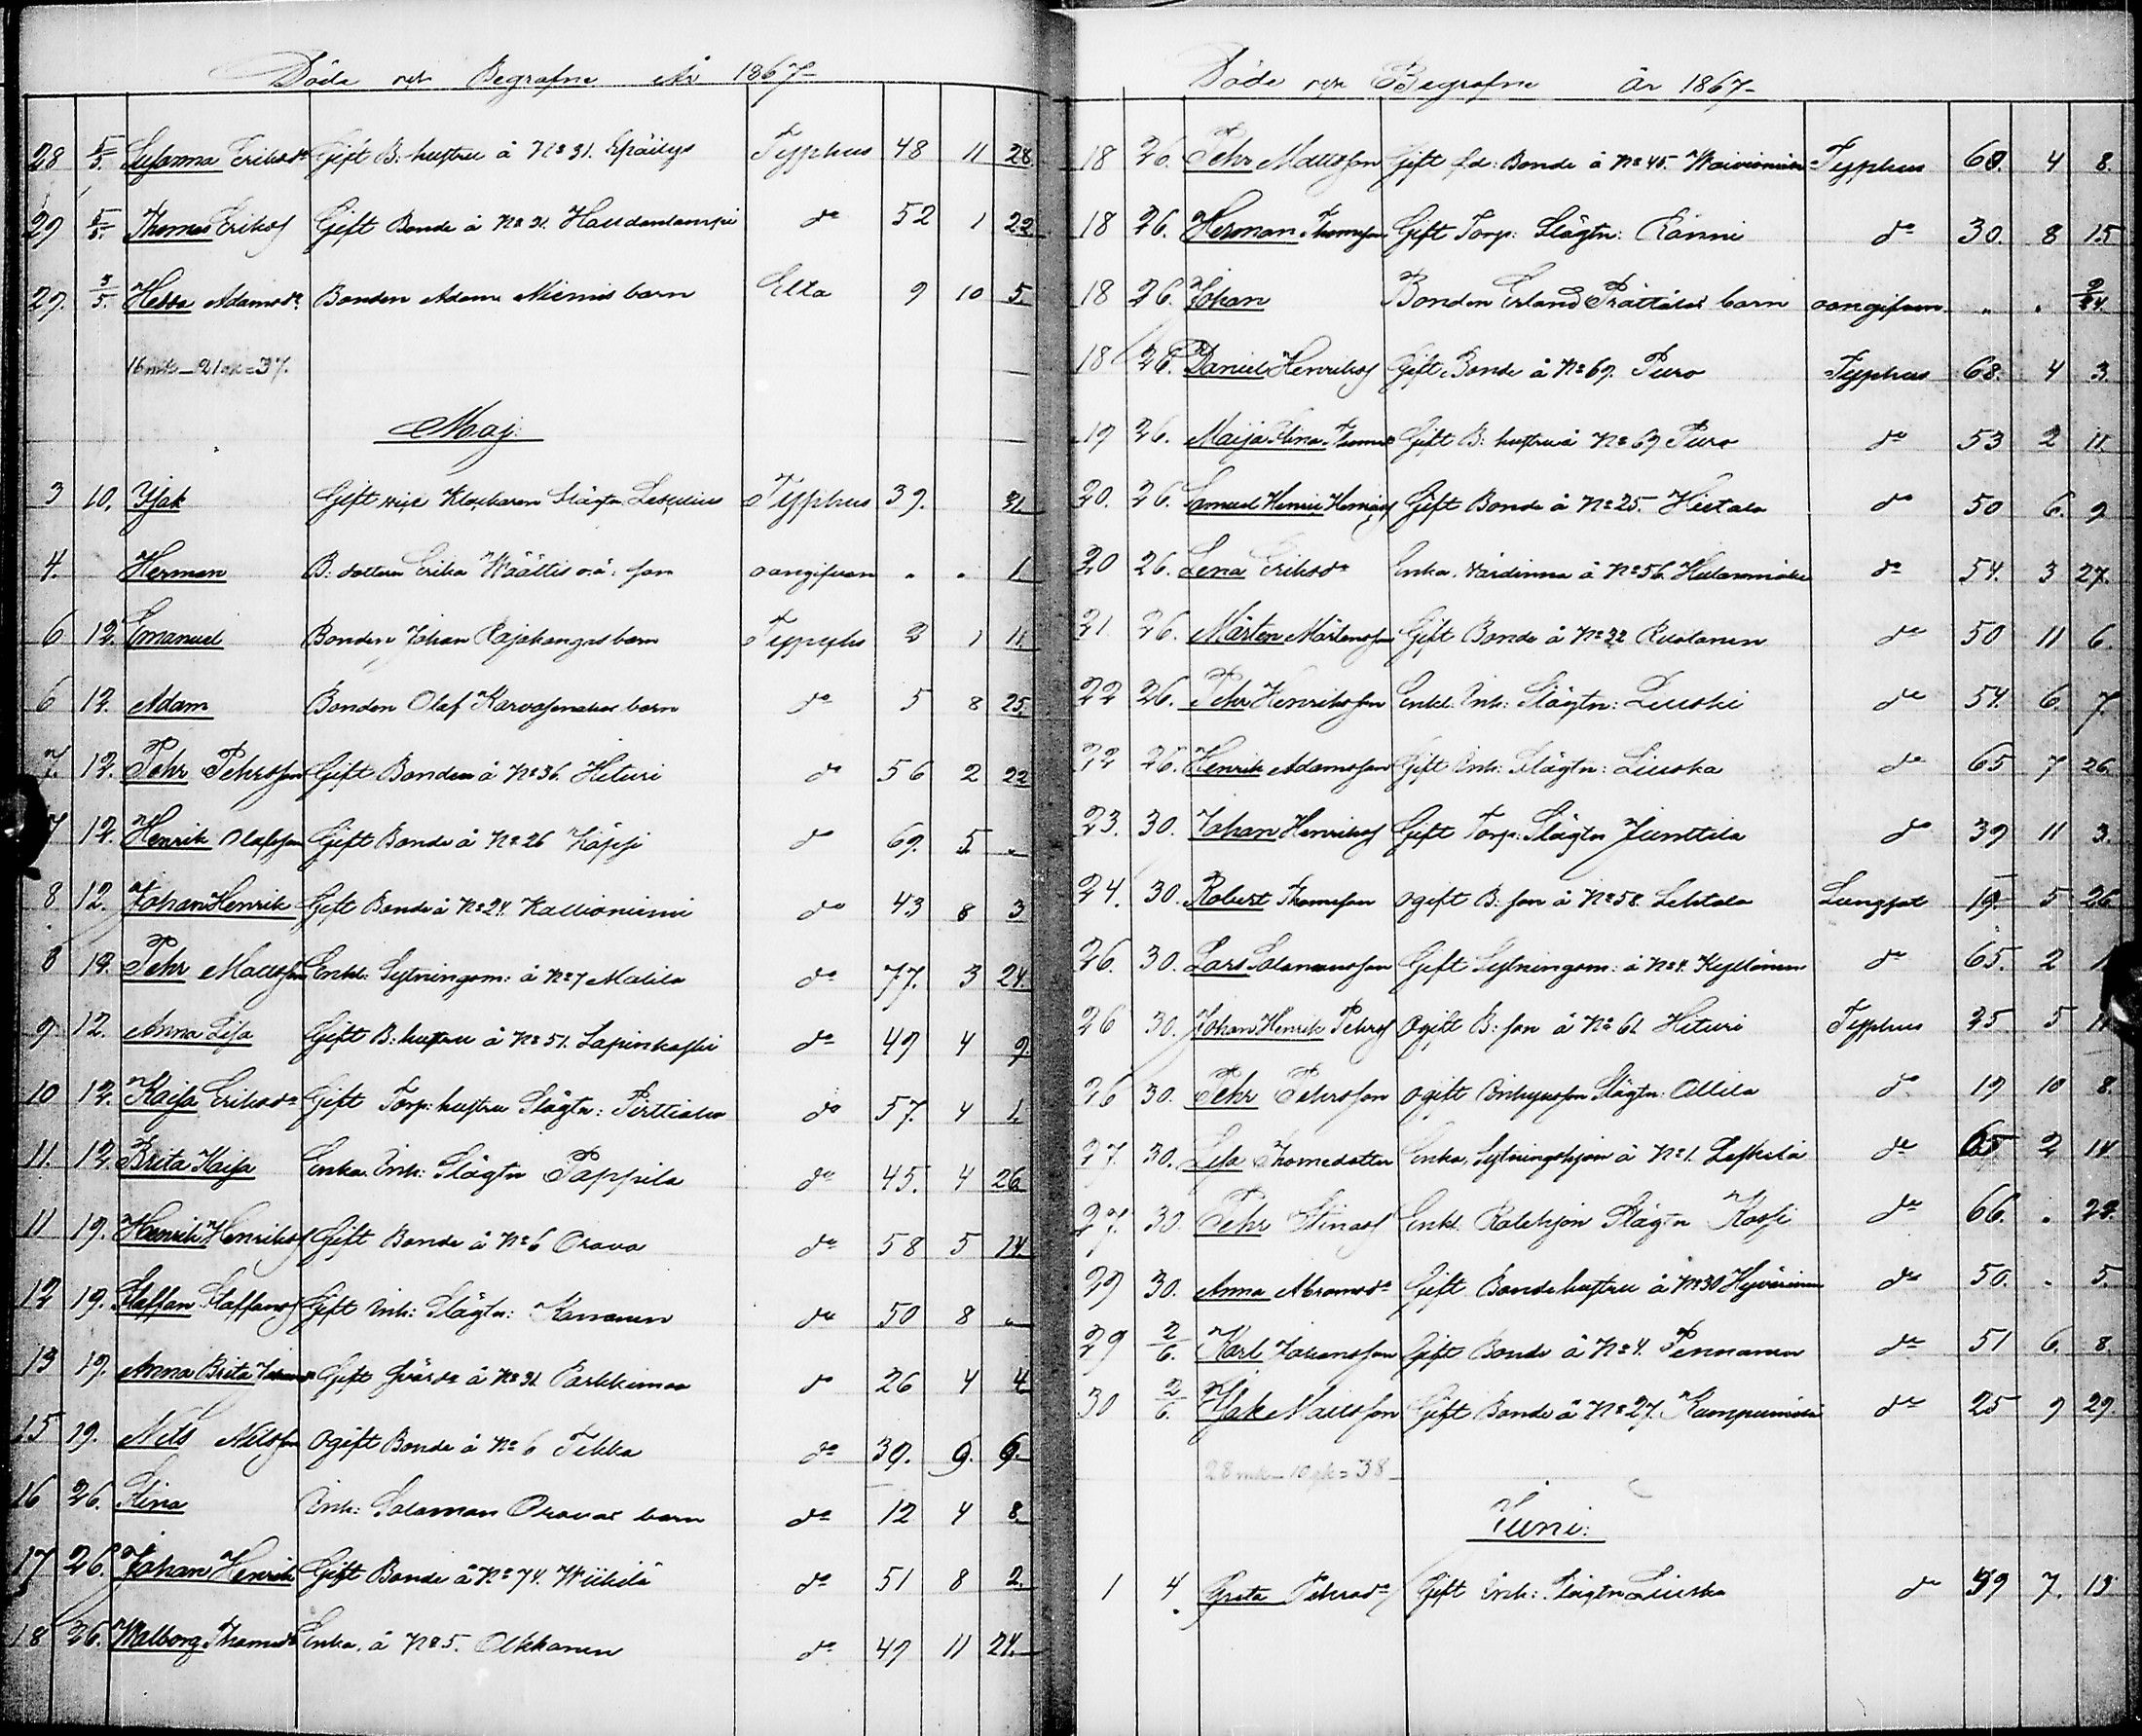 Döde och Begrafne År 1867
28 5/5. Susanna Eriksdr Gift B: hustru å No 31. Typhus 48 11 28.
29 5/5. Thomas Erikss Gift Bonde å No 21. Haudanlampi do 52 1 22
29. 3/5. Hedda Adamsdr Bonden Adam Niemis barn Elta 9 10 5
16 mk - 21 qk = 37.
Maj:
3 10. Isak Gift Klockaren Slägtn Typhus 39. 21
4. Herman B: dottern Erika Määttis oä: son oangifven " " 1
6 12. Emanuel Bonden Johan Rajakangas barn Typhus 2 1 11
6 12. Adam Bonden Olaf barn do 5 8 25.
7. 12. Pehr Pehrsson Gift Bonden å No 36. Hituri do 56 2 22
7 12. Henrik Olafsson Gift Bonde å No 26 Käpsi do 69. 5 "
8 12. Johan Henrik Gift Bonde å No 24. Kallioniemi do 43 8 3
8 12. Pehr Mattsson Enkl: Sytningsm: å No 7 Matila do 77. 3 24.
9 12. Anna Lisa Gift B: hustru å No 51. Lapinkoski do 49 4 9.
10 12. Kaisa Eriksdr Gift Torp: hustru Slägtn: Pirttiaho do 57. 4 1.
11. 12. Brita Kaisa Enka. Inh: Slägtn Pappila do 45. 4 26
11 19. Henrik Henrikss Gift Bonde å No 6 Orava do 58 5 14.
12 19. Staffan Staffanss Gift Inh: Slägtn: Karvanen do 50 8 "
13 19. Anna Brita Gift å No 31 Parkkimaa do 26 4 4
15 19. Nils Nilsson Ogift Bonde å No 6 Tikka do 39. 9. 9.
16 26. Stina Inh: Salamon Oravas barn do 12 4 8.
17 26. Johan Henrik Gift Bonde å No 74. Wiikilä do 51 8 2.
18 26. Walborg Thomasdr Enka, å No 5. Olkkonen do 49 11 24.
Döde och Begrafne år 1867
18 26. Pehr Mattsson Gift fd: Bonde å No 45. Typhus 60. 4 8.
18 26. Herman Thomsson Gift Torp: Slägtn: Rönni do 30. 8 15
18 26. Johan Bonden Erland Prättäläs barn oangifven " " 2/24.
18 26. Daniel Henrikss Gift Bonde å No 69. Puro Typhus 68. 4 3.
19 26. Maija Stina Thoms Gift B: hustru å No 69 Puro do 53 2 11.
20. 26. Samuel Henric Gift Bonde å No 25. Hietala do 50 6. 9
20 26. Lena Eriksdr Enka, Värdinna å No 56. do 54. 3 27.
21 26. Mårten Mårtensson Gift Bonde å No 22 Ruotanen do 50 11 6.
22 26. Pehr Henriksson Enkl: Inh: Slägtn: Liuski do 54. 6. 7.
22 26. Henrik Adamsson Gift Inh: Slägtn: Liuska do 65 7 26
23. 30. Johan Henrikss Gift Torp: Slägtn Junttila do 39 11 3.
24. 30. Robert Thomsson Ogift B: son å No 58. Lehtola Lungsot 19. 5 26
26. 30. Lars Salomonsson Gift Sytningsm: å No 4. Kyllönen do 65. 2 1
26 30. Johan Henrik Pehrss Ogift B: son å No 61. Hituri Typhus 25 5
26 30. Pehr Pehrsson Ogift Slägtn: Ollila do 19 10 8.
27. 30. Lisa Thomedotter Enka, Sytningshjon å No 1. Leskelä do 65 2 14
27. 30. Pehr Enkl. Rotehjon Slägtn Koski do 66. "
29 30. Anna Abramsdr Gift Bonde hustru å No 30 Hyvärinen do 50. " 5
29 2/6. Karl Johansson Gift Bonde å No 4. Pennanen do 51 6. 8.
30 2/6. Isak Mattsson Gift Bonde å No 27. Kumpumäki do 25 9 29.
28 mk - 10 qk = 38
Juni:
1 4. Greta Pehrsdr Gift Inh: Slägtn Liuska do 49 7. 15